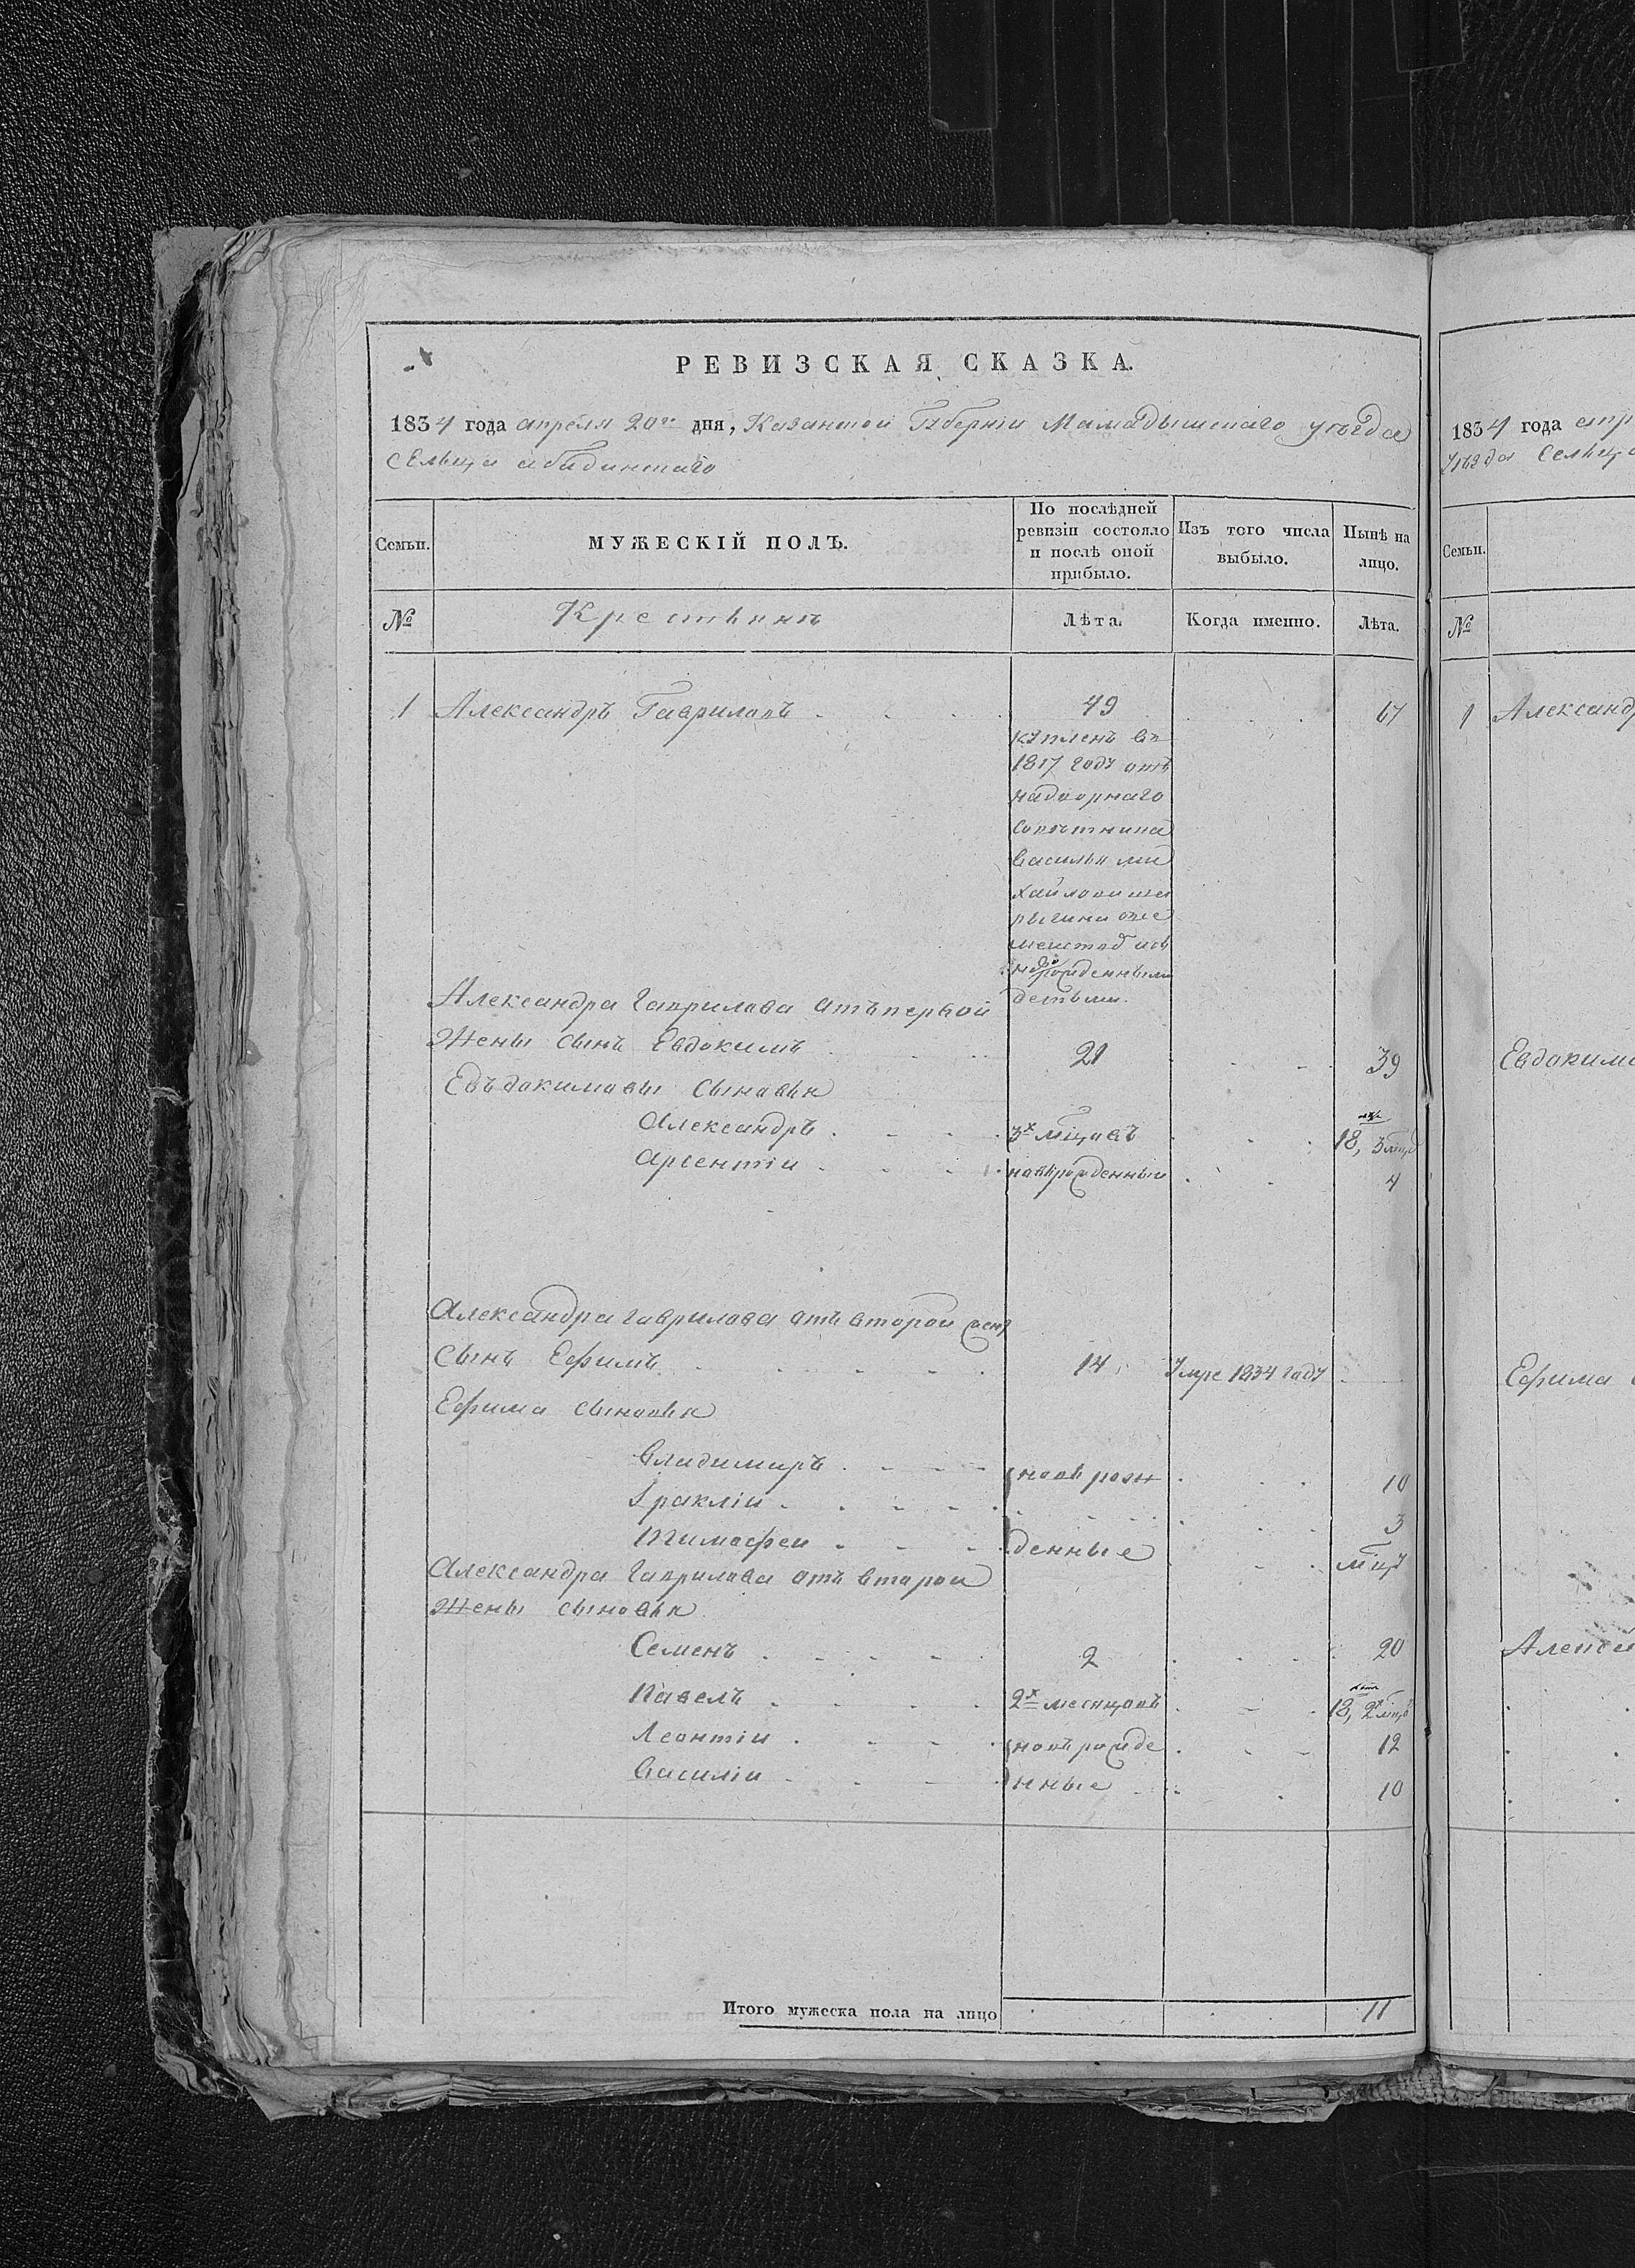 РЕВИЗСКАЯ СКАЗКА.
1834 года апреля 20го дня, Казанской Губерніи Мамадышскаго уѣзда
Сельца абидинскаго
Семьи. МУЖЕСКІЙ ПОЛЪ. По послѣдней ревизіи состояло и послѣ оной прибыло. Изъ того числа выбыло. Нынѣ на лицо.
№ Крестьянъ Лѣта. Когда именно. Лѣта.
1 Александръ Гавриловъ 49 67
купленъ въ
1817 году отъ
надворнаго
советника
Василья Ми
хайлова
новорожденными
детьми.
Александра гаврилова отъ первой
Жены сынъ Евдокимъ 21 39
Евъдокимовы сыновья
Александръ 3х мцовъ 18, 3 мцъ
Арсентіи новорожденныи 4
Александра гаврилова отъ второй жены
сынъ Ефимъ 14 Умре 1834 году
Ефима сыновья
Владимиръ новорож 10
Іракліи 3
Тимофеи денные мцъ
Александра гаврилова отъ второи
Жены сыновья
Семенъ 2 20
Павелъ 2х месяцовъ 18, 2х мцъ
Леонтіи новърожде 12
Василіи нные 10
Итого мужеска пола на лицо 11
1834 года апр
Уѣзда Сельца
Семьи.
№
1 Александр
Евдоким
Ефима
Алексеи